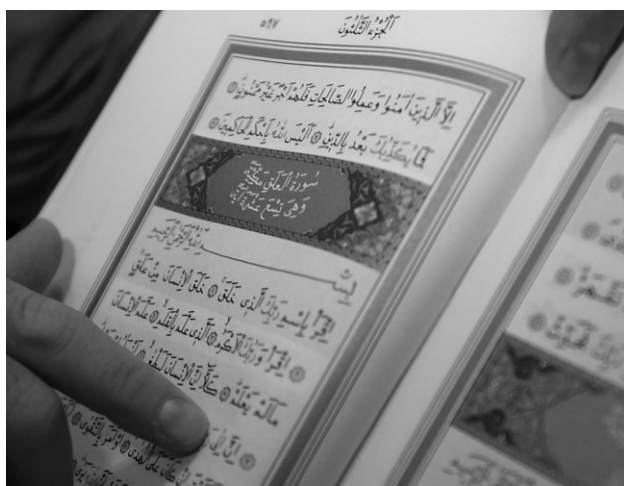 ٥٩٧ اَلْجُزْءُ الثَّلٰثُونَ
اِلَّا الَّذ۪ينَ اٰمَنُوا وَعَمِلُوا الصَّالِحَاتِ فَلَهُمْ اَجْرٌ غَيْرُ مَمْنُونٍ
فَمَا يُكَذِّبُكَ بَعْدُ بِالدّ۪ينِ اَلَيْسَ اللّٰهُ بِاَحْكَمِ الْحَاكِم۪ينَ
سُورَةُ الْعَلَقِ مَكِّيَّةٌ
وَهِيَ تِسْعَ عَشْرَةَ اٰيَةً
بِسْمِ اللّٰهِ الرَّحْمٰنِ الرَّح۪يمِ
اِقْرَأْ بِاسْمِ رَبِّكَ الَّذ۪ي خَلَقَ خَلَقَ الْاِنْسَانَ مِنْ عَلَقٍ
اِقْرَأْ وَرَبُّكَ الْاَكْرَمُ اَلَّذ۪ي عَلَّمَ بِالْقَلَمِ عَلَّمَ الْاِنْسَانَ
مَا لَمْ يَعْلَمْ كَلَّا اِنَّ الْاِنْسَانَ لَيَطْغٰى
اِنَّ اِلٰى
عَلَى الْهُدٰى اَوْ اَمَرَ بِالتَّقْوٰى